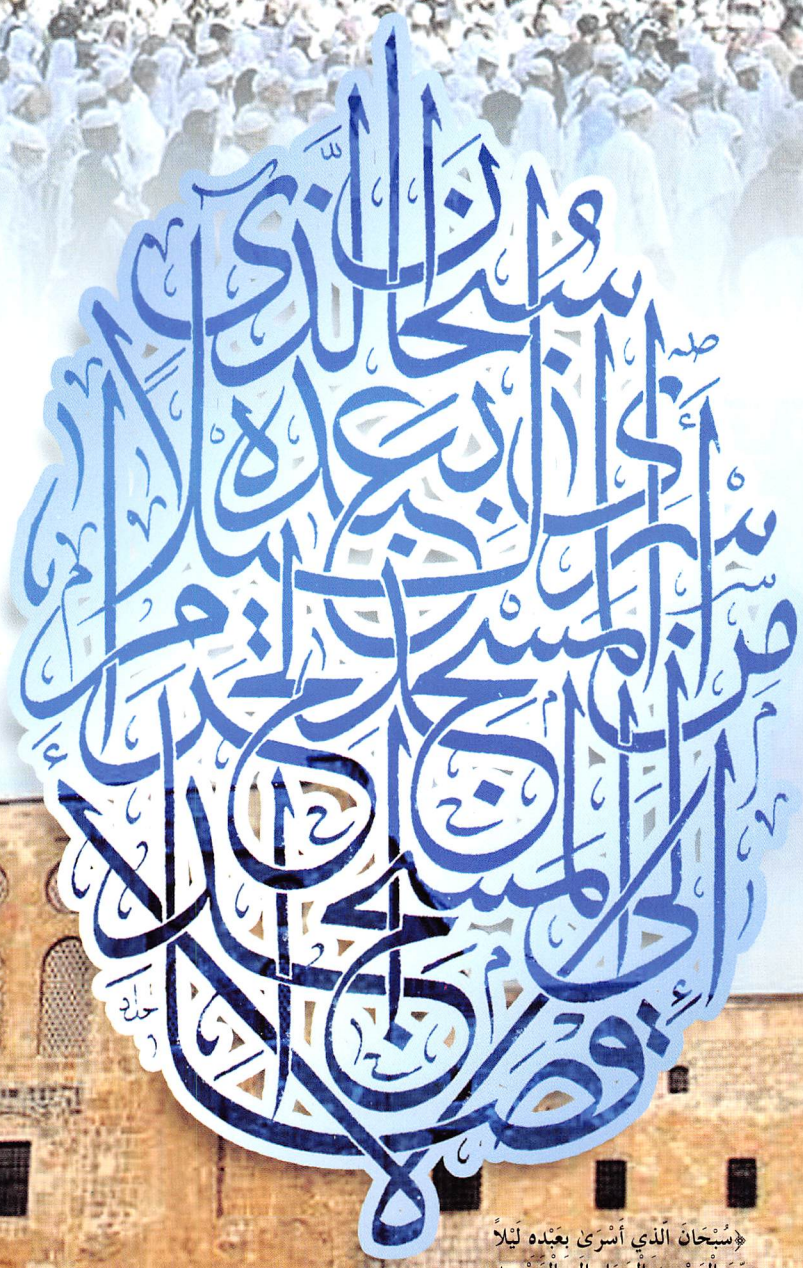 سُبْحَانَ الَّذِي
أَسْرَىٰ بِعَبْدِهِ لَيْلًا
مِّنَ الْمَسْجِدِ الْحَرَامِ
إِلَى الْمَسْجِدِ الْأَقْصَا
﴿سُبْحَانَ الَّذِي أَسْرَىٰ بِعَبْدِهِ لَيْلاً